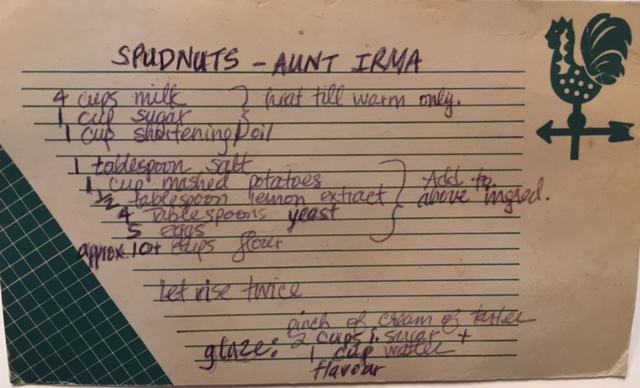 SPUDNUTS - AUNT IRMA
4 cups milk } heat till warm only.
1 cup sugar
1 cup shortening/oil
1 tablespoon salt
1 cup mashed potatoes } Add to
1/2 tablespoon lemon extract above ingred.
4 tablespoons yeast
5 eggs
approx. 10+ cups flour
Let rise twice
pinch of cream of tarter
glaze: 2 cups i. sugar +
1 cup water
flavour